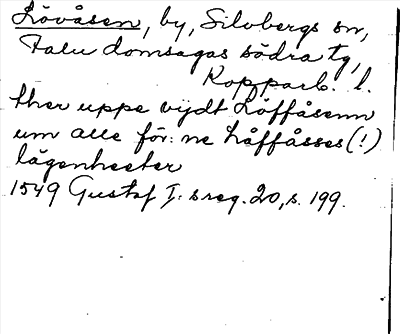 Lövåsen, by, Silvbergs sn,
Falu domsagas södra tg,
Kopparb. l.
ther uppe vydt Löffåsenn
um alle för:ne Låffåsses (!)
lägenheeter
1549 Gustaf I:s reg. 20, s. 199.